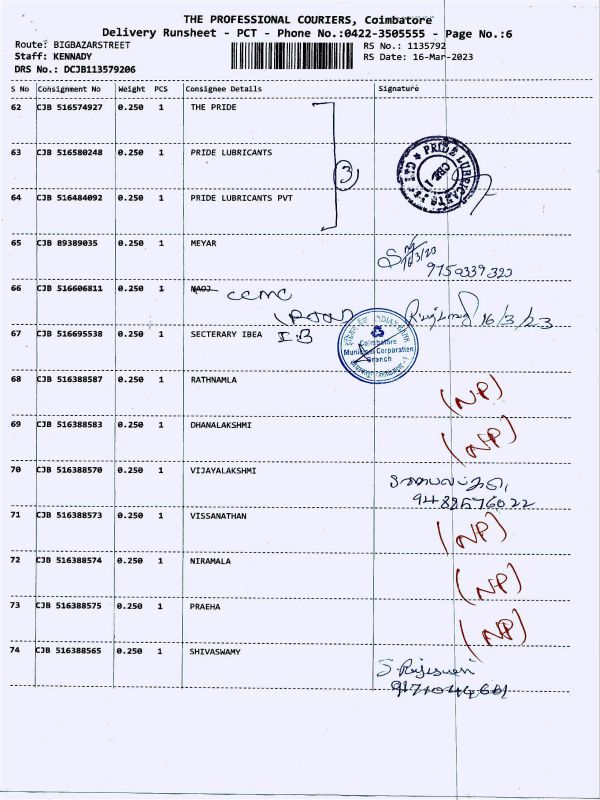 THE PROFESSIONAL COURIERS, Coimbatore
Delivery Runsheet - PCT - Phone No.:0422-3505555 - Page No.:6
Route: BIGBAZARSTREET RS No.: 1135792
Staff: KENNADY RS Date: 16-Mar-2023
DRS No.: DCJB113579206
S No Consignment No Weight PCS Consignee Details Signature
62 CJB 516574927 0.250 1 THE PRIDE
63 CJB 516580248 0.250 1 PRIDE LUBRICANTS
3
PRIDE LUBRICANTS
CBE
64 CJB 516484092 0.250 1 PRIDE LUBRICANTS PVT
65 CJB 89389035 0.250 1 MEYAR
16/3/23
9750339323
66 CJB 516606811 0.250 1 NAOJ CCMC
16/3/23
67 CJB 516695538 0.250 1 SECTERARY IBEA I.B
INDIAN BANK
Coimbatore
Municipal Corporation
Branch
68 CJB 516388587 0.250 1 RATHNAMLA (NP)
69 CJB 516388583 0.250 1 DHANALAKSHMI (NP)
70 CJB 516388570 0.250 1 VIJAYALAKSHMI
9488576022
71 CJB 516388573 0.250 1 VISSANATHAN (NP)
72 CJB 516388574 0.250 1 NIRAMALA (NP)
73 CJB 516388575 0.250 1 PRAEHA (NP)
74 CJB 516388565 0.250 1 SHIVASWAMY